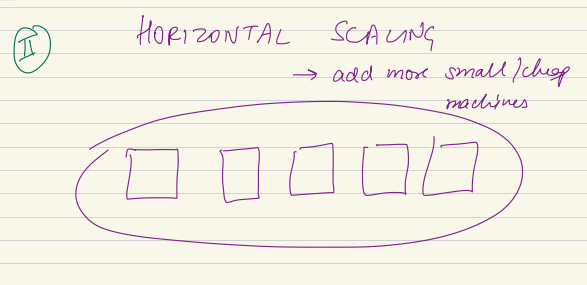 II
HORIZONTAL SCALING
→ add more small/cheap
machines